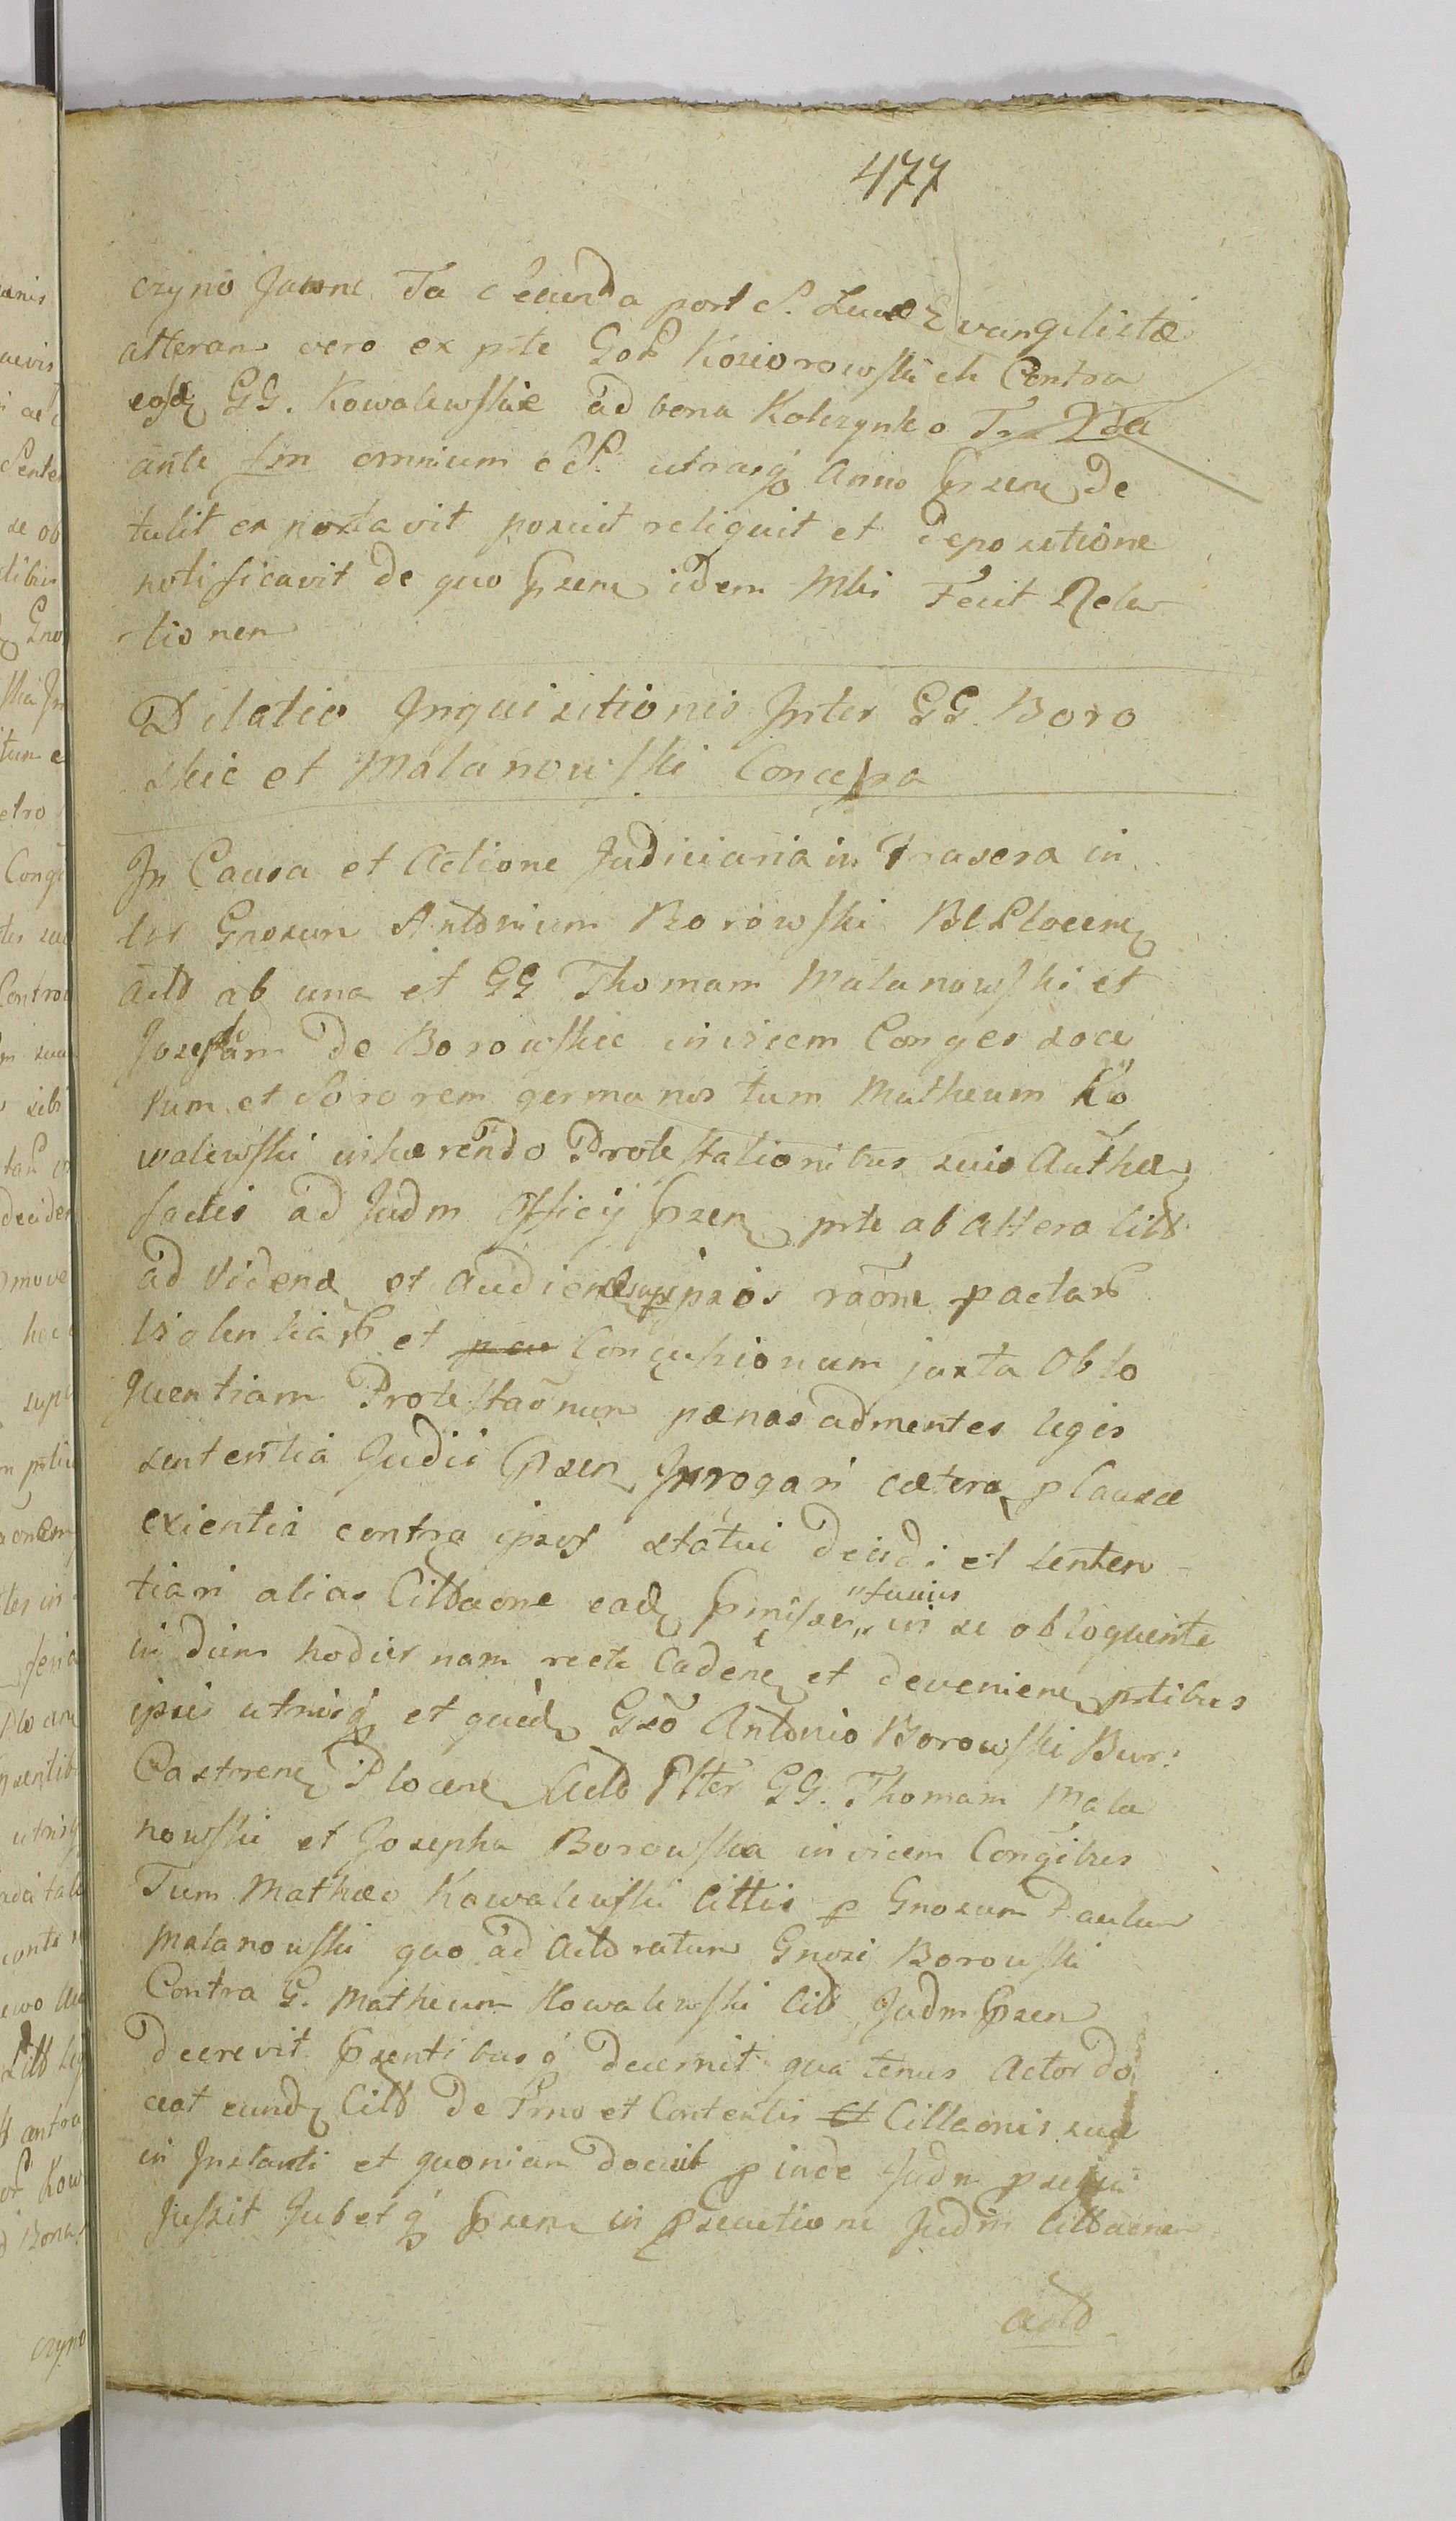 477
czyno Jawne Fa Secunda post S. Lucae Evangelistae
alteram vero ex pte GoR Koziorowskich Contra
eosd GG. Kowalewskie ad bona Kolczynko Fra 2da
ante fm omnium SS. utrasq Anno Psen de
tulit exportavit posuit reliquit et depositione
notificavit de quo Psen idem Mlis Fecit Rela
tionem
Dilatio Inquisitionis Inter GG. Boro
skie et Malanowski Concessa
In Causa et Actione Judiciaria in Frasera in
ter Gnosum Antonium Borowski Bl Plocen
Actd ab una et GG Thomam Malanowski et
Josepham De Borowskie invicem Conges soce
rum et Sororem germanos tum Matheum Ko
walewski inhaerendo Protestationibus suis Authen
factis ad Judm Officij Psen pte ab altera Citt
ad Vidend et Audiend ipsos raone pactar
Violentiar et Concussionum juxta Oblo
quentiam Protestaonum paenas ad mentes legis
sententia Judii Psen Irrogari caetera p Causae
exientia contra ipsos statui decidi et senten
tiari alias Cittaone ead Pmissor fusius in se obloquente
in diem hodiernam recte Caden et devenien ptibus
ipsis utrisq et quid Gso Antonio Borowski Bur:
Castren Plocen Actd Pter GG. Thomam Mala
nowski et Josepha Borowska invicem Congibus
Tum Mathaeo Kowalewski Cittis p Gnosum Paulum
Malanowski quo ad Actoratum Gnosi Borowski
Contra G. Matheum Kowalewski Citt Judm Psen
decrevit Psentibusq decernit quatenus Actor do
ceat eund Citt de Trno et Contentis Cittaonis suae
in Instanti et quoniam docuit p inde Judm
Jussit Jubetq Psen in Psecutione Judm Cittaonem
actd